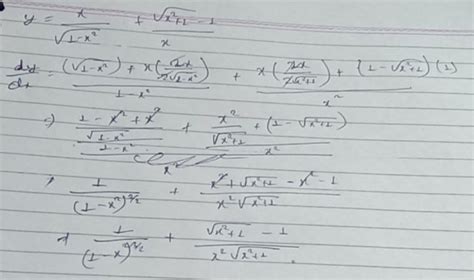 y = x/√(1-x²) + (√(x²+1) - 1)/x
dy/dx = ((√(1-x²)) + x(2x/2√(1-x²)))/(1-x²) + (x(2x/2√(x²+1)) + (1-√(x²+1))(1))/x²
⇒ ((1-x²+x²)/√(1-x²))/(1-x²) + (x²/√(x²+1) + (1-√(x²+1)))/x²
⇒ 1/(1-x²)^(3/2) + (x²+√(x²+1) - x² - 1)/(x²√(x²+1))
⇒ 1/(1-x)^(3/2) + (√(x²+1) - 1)/(x²√(x²+1)).